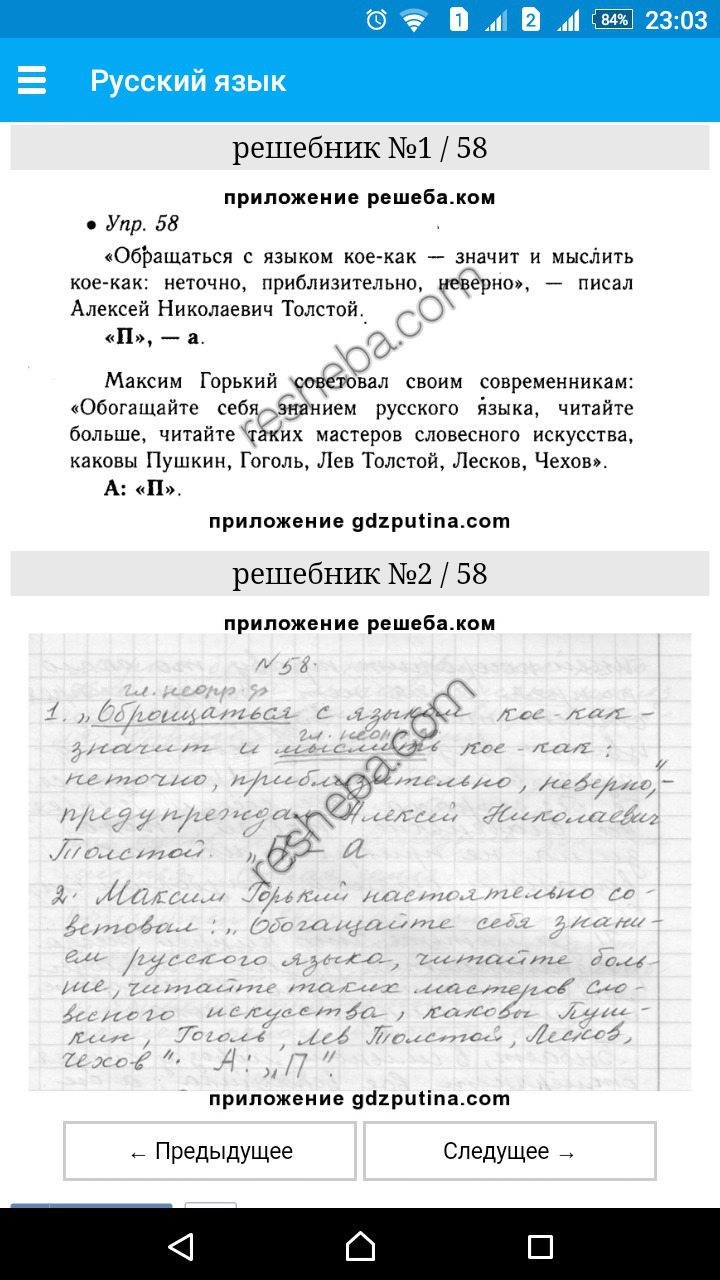 1 2 84% 23:03
Русский язык
решебник №1 / 58
приложение решеба.ком
• Упр. 58
«Обращаться с языком кое-как — значит и мыслить
кое-как: неточно, приблизительно, неверно», — писал
Алексей Николаевич Толстой.
«П», — а.
Максим Горький советовал своим современникам:
«Обогащайте себя знанием русского языка, читайте
больше, читайте таких мастеров словесного искусства,
каковы Пушкин, Гоголь, Лев Толстой, Лесков, Чехов».
А: «П».
resheba.com
приложение gdzputina.com
решебник №2 / 58
приложение решеба.ком
№58.
гл. неопр. ф
1. „Обращаться с языком кое-как –
гл. неопр.
значит и мыслить кое-как:
неточно, приблизительно, неверно," –
предупреждал Алексей Николаевич
Толстой. – а
2. Максим Горький настоятельно со-
ветовал: „Обогащайте себя знани-
ем русского языка, читайте боль-
ше, читайте таких мастеров сло-
весного искусства, каковы Пуш-
кин, Гоголь, Лев Толстой, Лесков,
Чехов". А: „П".
resheba.com
приложение gdzputina.com
← Предыдущее
Следущее →